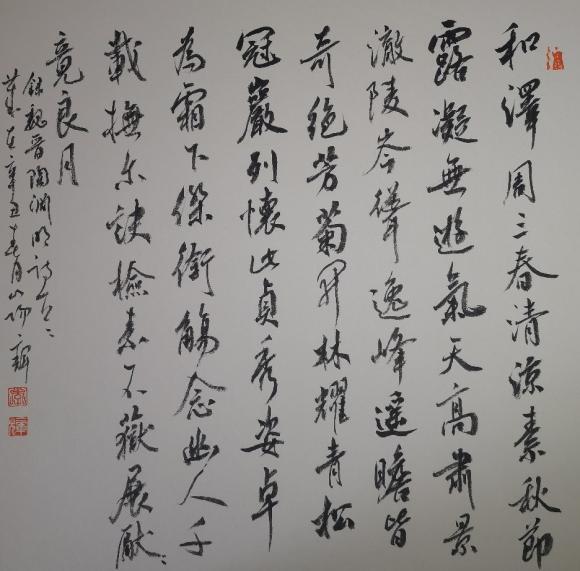 和澤周三春清涼素秋節
露凝無遊氣天高肅景
澈陵岑聳逸峰遙瞻皆
奇絕芳菊開林耀青松
冠巖列懷此貞秀姿卓
為霜下傑銜觴念幽人千
載撫尔訣檢素不嶽展厭〻
竟良月
錄魏晉陶淵明詩
歲在辛丑春月山陽